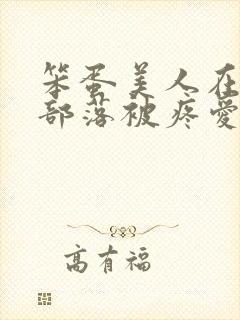 笨蛋美人在
部落被疼愛
高有福